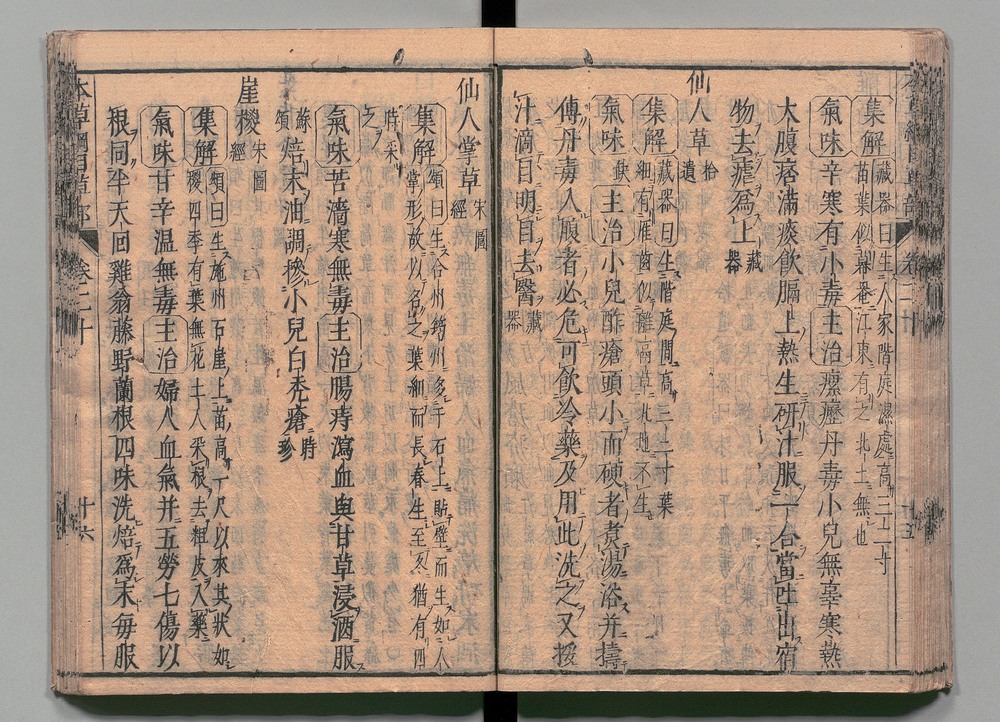 集解 藏器曰生人家階庭濕處高三二寸
苗葉似幕菴江東有之北土無也
氣味 辛寒有小毒 主治 瘰癧丹毒小兒無辜寒熱
大腹痞滿痰飲膈上熱生研汁服一合當吐出宿
物去瘧爲上 藏器
仙人草 拾遺
集解 藏器曰生階庭間高二三寸葉
細有雁齒似離鬲草北地不生
氣味 缺 主治 小兒酢瘡頭小而硬者煮湯浴并擣
傅丹毒入腹者必危可飲冷藥及用此洗之又挼
汁滴目明目去翳 藏器
仙人掌草 宋圖經
集解 頌曰生合州筠州多于石上貼壁而生如人
掌形故以名之葉細而長春生至冬猶有四
時采之
氣味 苦濇寒無毒 主治 腸痔瀉血與甘草浸酒服
蘇頌 焙末油調摻小兒白禿瘡 時珍
崖椶 宋圖經
集解 頌曰生施州石崖上苗高一尺以來其狀如
椶四季有葉無花土人采根去粗皮入藥
氣味 甘辛溫無毒 主治 婦人血氣并五勞七傷以
根同半天回雞翁藤野蘭根四味洗焙爲末每服
本草綱目草部 卷二十 十六